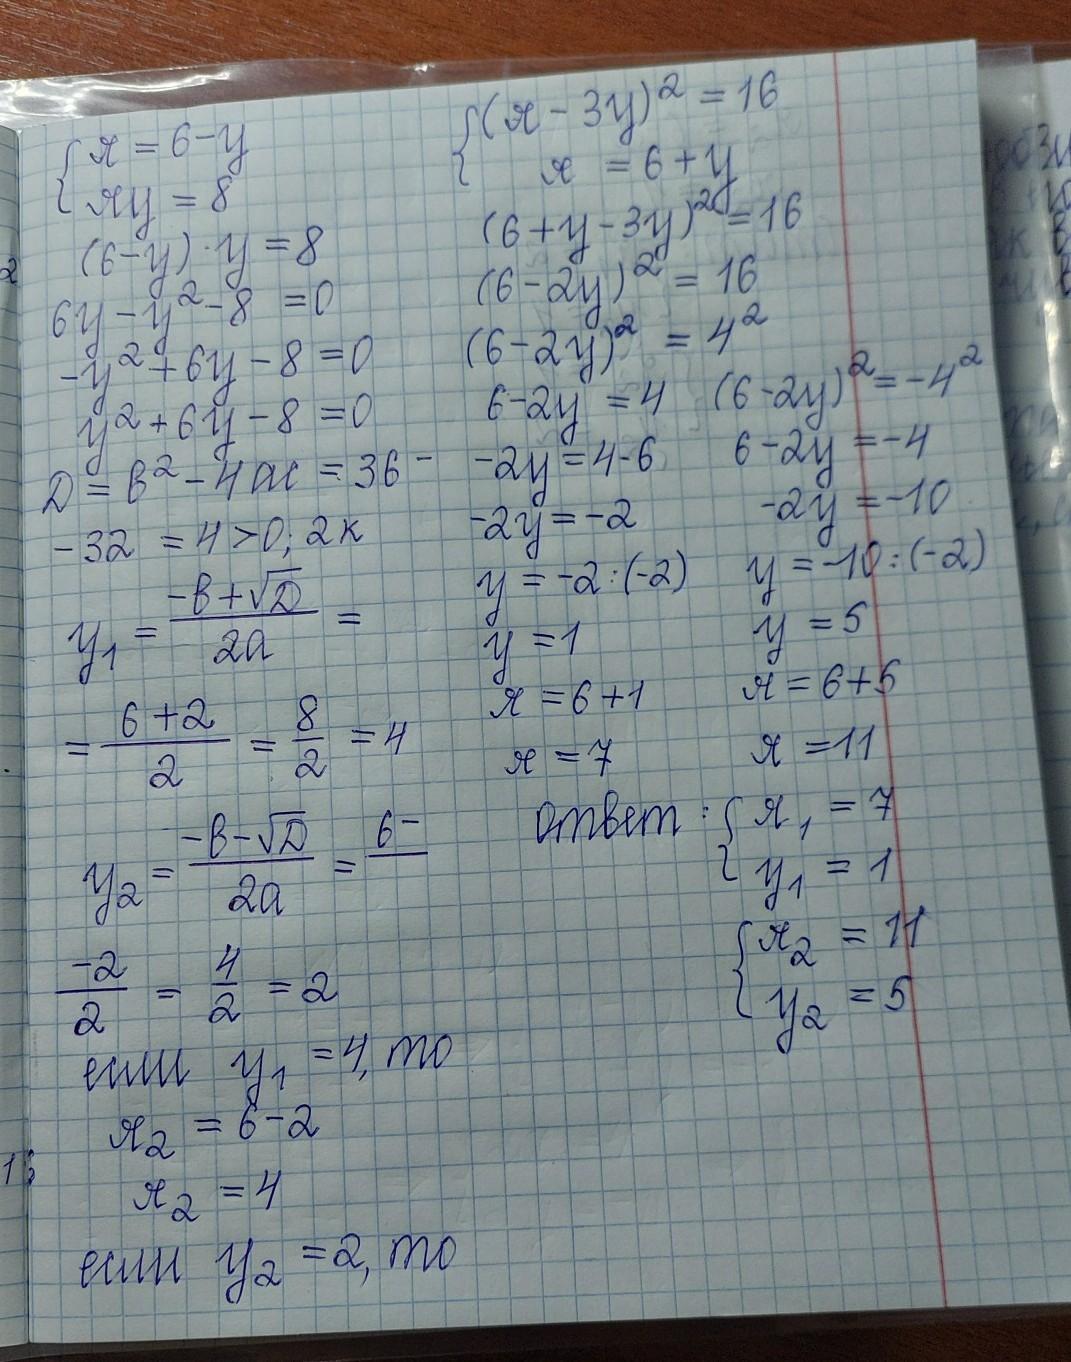 { x = 6 - y
xy = 8
(6-y) · y = 8
6y - y² - 8 = 0
-y² + 6y - 8 = 0
y² + 6y - 8 = 0
D = b² - 4ac = 36 -
- 32 = 4 > 0; 2к
y₁ = (-b + √D)/(2a) =
= (6+2)/2 = 8/2 = 4
y₂ = (-b - √D)/(2a) = 6-
-2/2 = 4/2 = 2
если y₁ = 4, то
x₂ = 6 - 2
x₂ = 4
если y₂ = 2, то
{ (x - 3y)² = 16
x = 6 + y
(6 + y - 3y)² = 16
(6 - 2y)² = 16
(6 - 2y)² = 4²
6 - 2y = 4
-2y = 4 - 6
-2y = -2
y = -2 : (-2)
y = 1
x = 6 + 1
x = 7
(6 - 2y)² = -4²
6 - 2y = -4
-2y = -10
y = -10 : (-2)
y = 5
x = 6 + 5
x = 11
ответ: { x₁ = 7
y₁ = 1
{ x₂ = 11
y₂ = 5